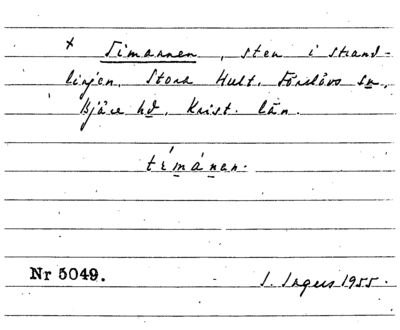 x Timannen, sten i strand-
linjen, Stora Hult, Förslövs sn,
Bjäre hd, Krist. län.
tímánan.
Nr 5049.
I. Ingers 1955.